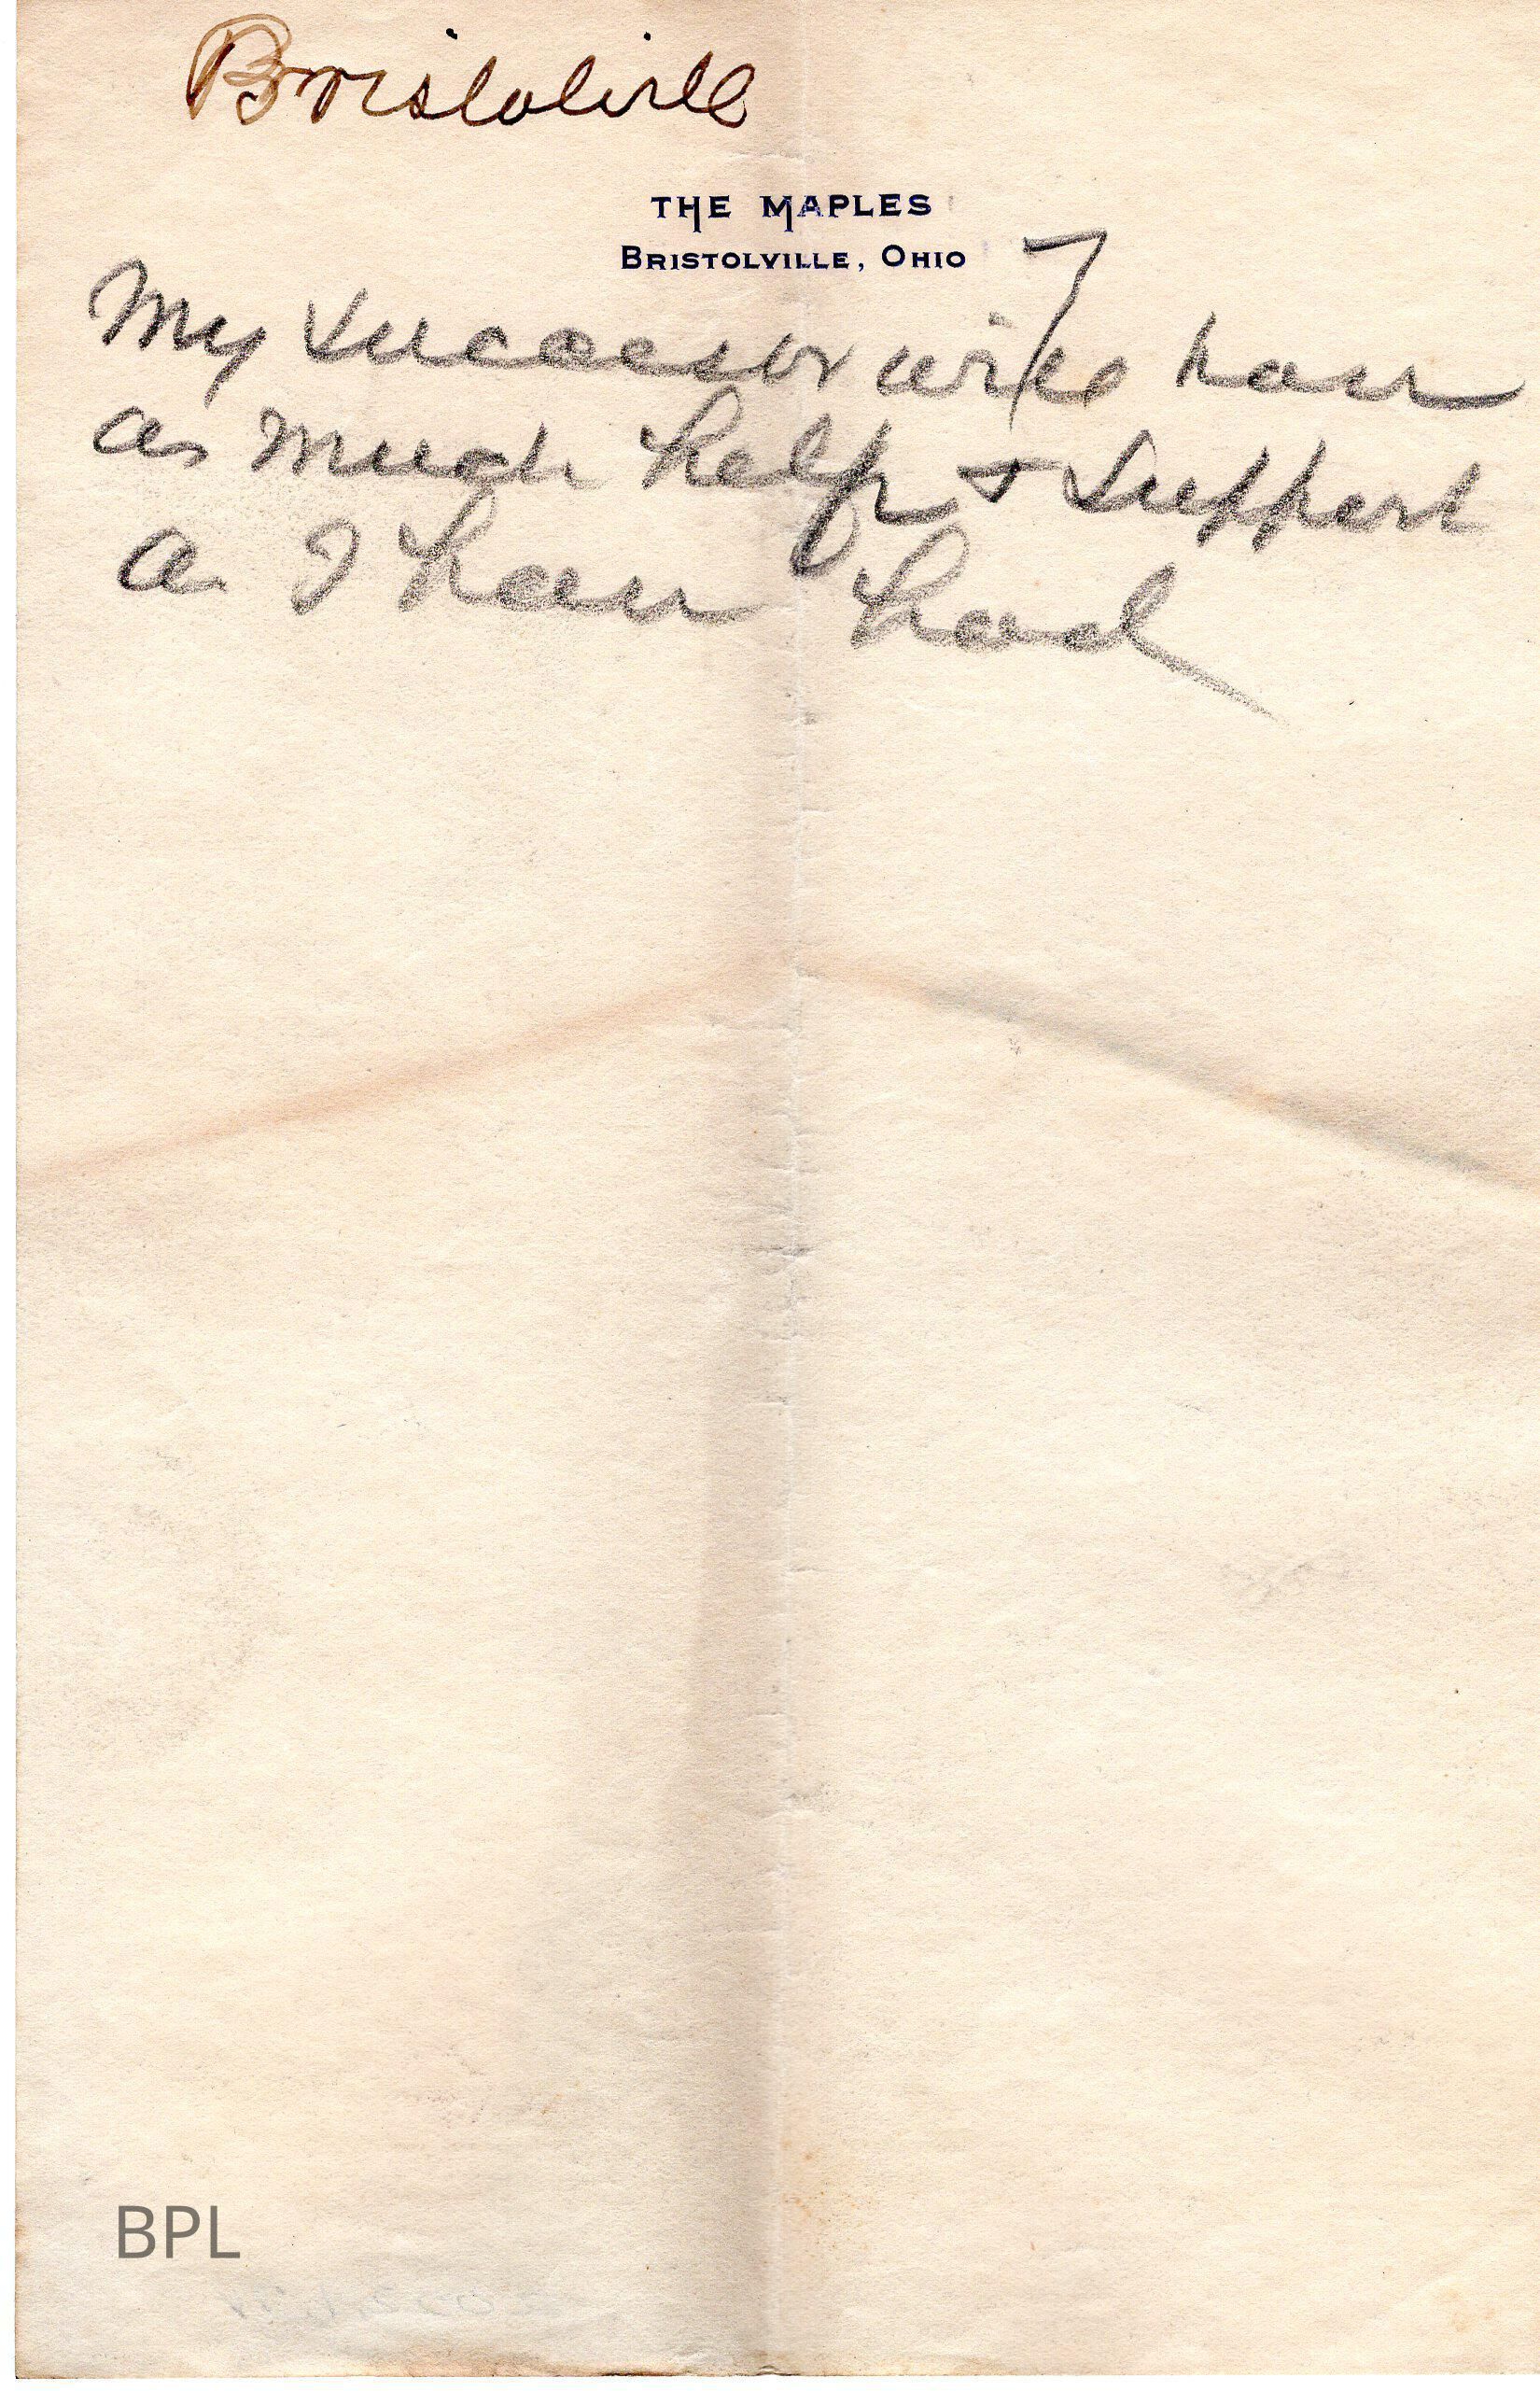 Bristolville
THE MAPLES
BRISTOLVILLE, OHIO
7
My Successor will have
as much help & Support
as I have had
BPL